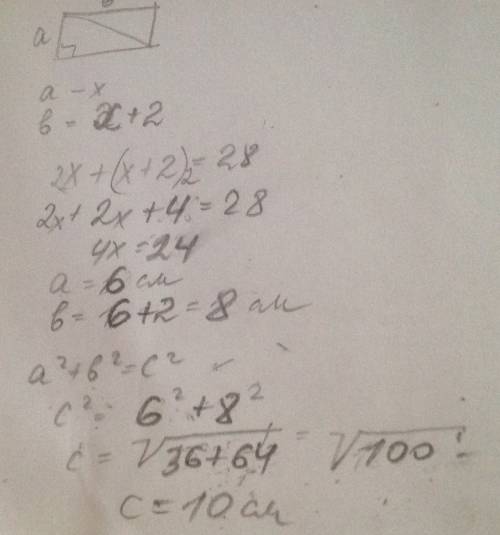 в
a
a – x
в = x+2
2x+(x+2)2=28
2x+2x+4=28
4x=24
a = 6 см
в = 6+2=8 см
a²+в²=c²
c²= 6²+8²
c = √36+64 = √100
c = 10 см